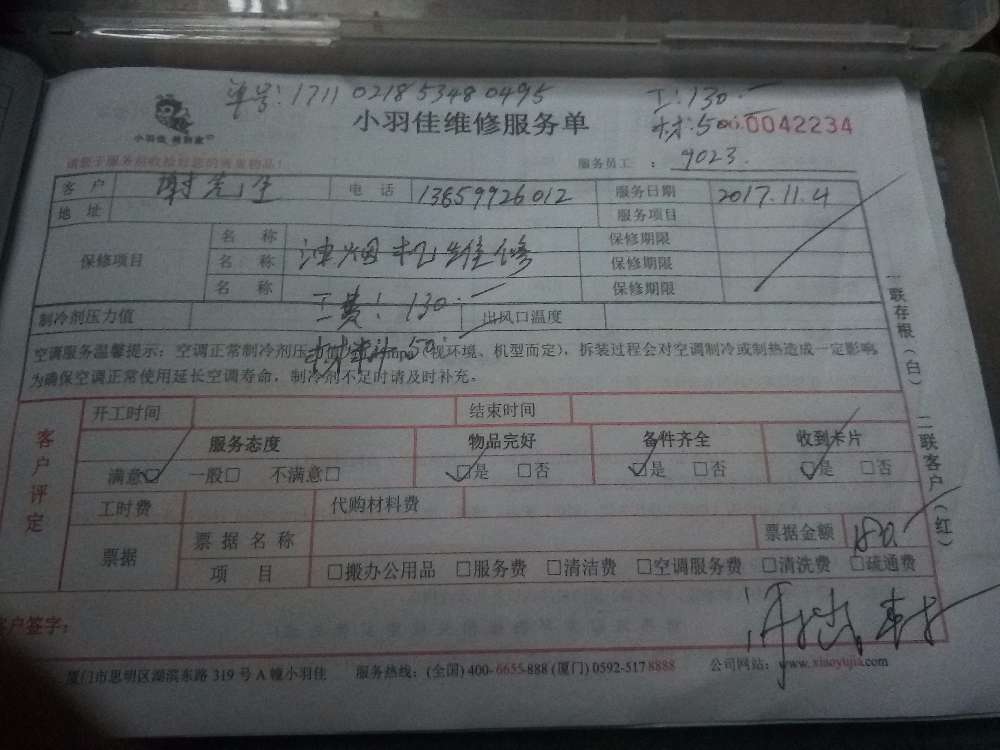 单号:1711 0218 5348 0495 工:130.—
小羽佳 小羽佳维修服务单 材:50. 0042234
服务员工 : 9023.
客户 谢先生 电话 13659926012 服务日期 2017.11.4
地址 服务项目
保修项目 名称 油烟机维修 保修期限
名称 保修期限
名称 保修期限
工费:130.—
制冷剂压力值 出风口温度
材料:50.
空调服务温馨提示:空调正常制冷剂压 视环境、机型而定),拆装过程会对空调制冷或制热造成一定影响,
为确保空调正常使用延长空调寿命,制冷剂不足时请及时补充。
一联存根(白) 二联客户(红)
客户评定
开工时间 结束时间
服务态度 物品完好 备件齐全 收到卡片
满意□ 一般□ 不满意□ □是 □否 □是 □否 □是 □否
工时费 代购材料费
票据 票据名称 票据金额 180.—
项目 □搬办公用品 □服务费 □清洁费 □空调服务费 □清洗费 □疏通费
客户签字:
厦门市思明区湖滨东路 319 号 A 幢小羽佳 服务热线:(全国) 400-6655-888 (厦门) 0592-517 8888 公司网站:www.xiaoyujia.com